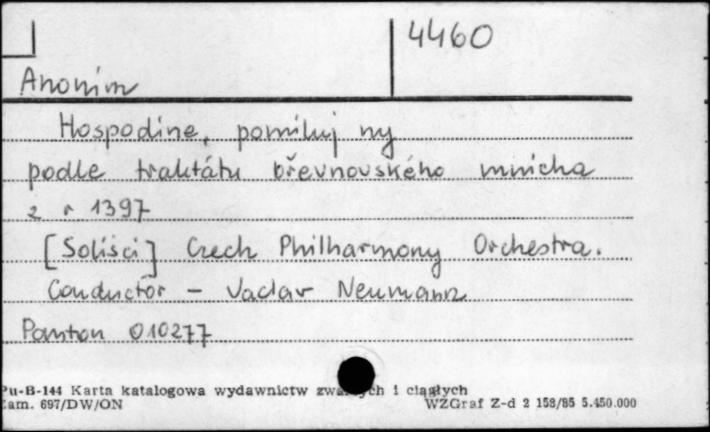 4460
Anonim
Hospodine, pomiluj ny
podle traktátu břevnovského mnicha
z r 1397
[Soliści] Czech Philharmony Orchestra.
Conductor - Vaclav Neumann
Panton 010277
Pu-B-144 Karta katalogowa wydawnictw zwartych i ciągłych
Zam. 697/DW/ON WZGraf Z-d 2 158/85 5.450.000